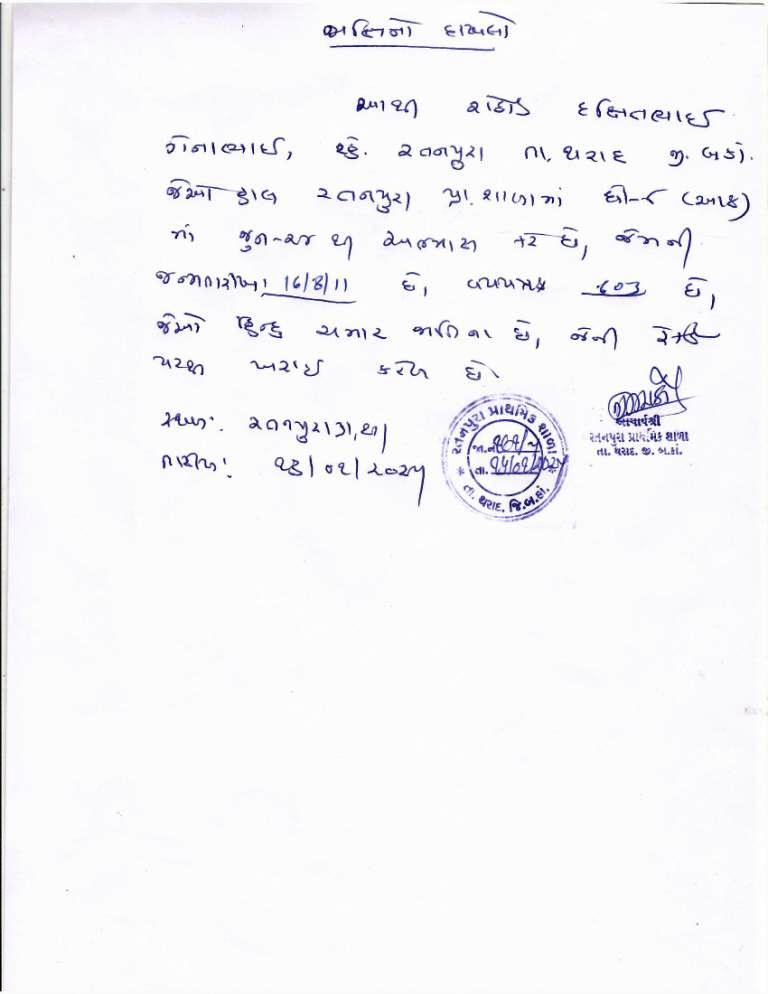 જાતિનો દાખલો
આથી રાઠોડ દક્ષિતભાઈ
ગેનાભાઈ, રહે. રતનપુરા તા, થરાદ જી. બકાં.
જેઓ હાલ રતનપુરા પ્રા. શાળામાં ધો-૮ (આઠ)
માં જુન-૨૪ થી અભ્યાસ કરે છે, જેમની
જન્મતારીખ 16/8/11 છે, વયપત્રક 603 છે,
જેઓ હિન્દુ ચમાર જાતિના છે, જેની રેકર્ડ
પરથી ખરાઈ કરેલ છે.
સ્થળ: રતનપુરા
તારીખ: ૧૩/૦૧/૨૦૨૫
રતનપુરા પ્રાથમિક શાળા
જા.નં.
તા.
તા. થરાદ, જિ.બ.કાં.
આચાર્યશ્રી
રતનપુરા પ્રાથમિક શાળા
તા. થરાદ. જી. બ.કાં.